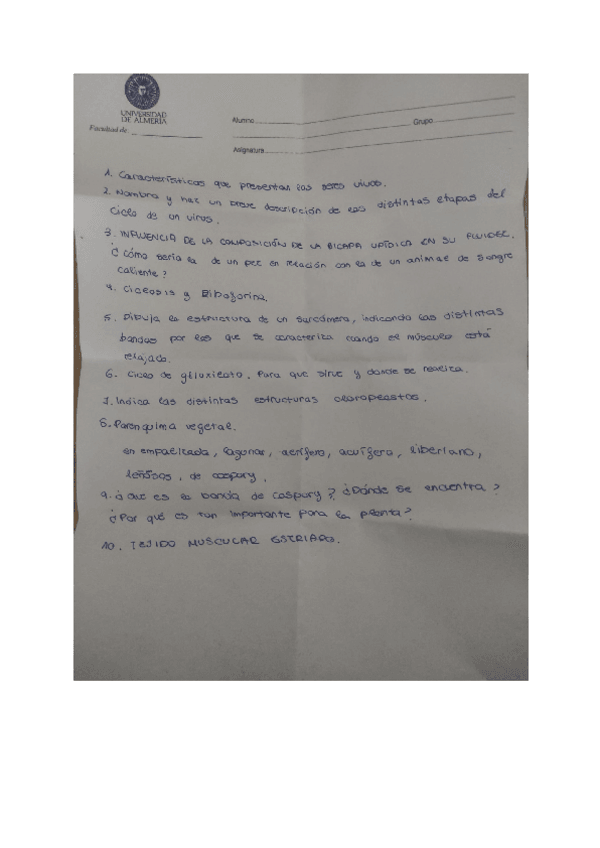 UNIVERSIDAD
DE ALMERÍA
Facultad de
Alumno Grupo
Asignatura
1. Características que presentan los seres vivos.
2. Nombra y haz un breve descripción de las distintas etapas del
ciclo de un virus.
3. INFLUENCIA DE LA COMPOSICIÓN DE LA BICAPA LIPÍDICA EN SU FLUIDEZ.
¿Cómo sería la de un pez en relación con la de un animal de sangre
caliente?
4. Ciclosis y Riboforina.
5. Dibuja la estructura de un sarcómero, indicando las distintas
bandas por las que se caracteriza cuando el músculo está
relajado.
6. Ciclo de glioxilato. Para que sirve y donde se realiza.
7. Indica las distintas estructuras cloroplastos.
8. Parénquima vegetal.
en empalizada, lagunar, aerífero, acuífero, liberiano,
leñosos, de caspary.
9. ¿Qué es la banda de caspary? ¿Dónde se encuentra?
¿Por qué es tan importante para la planta?
10. TEJIDO MUSCULAR ESTRIADO.